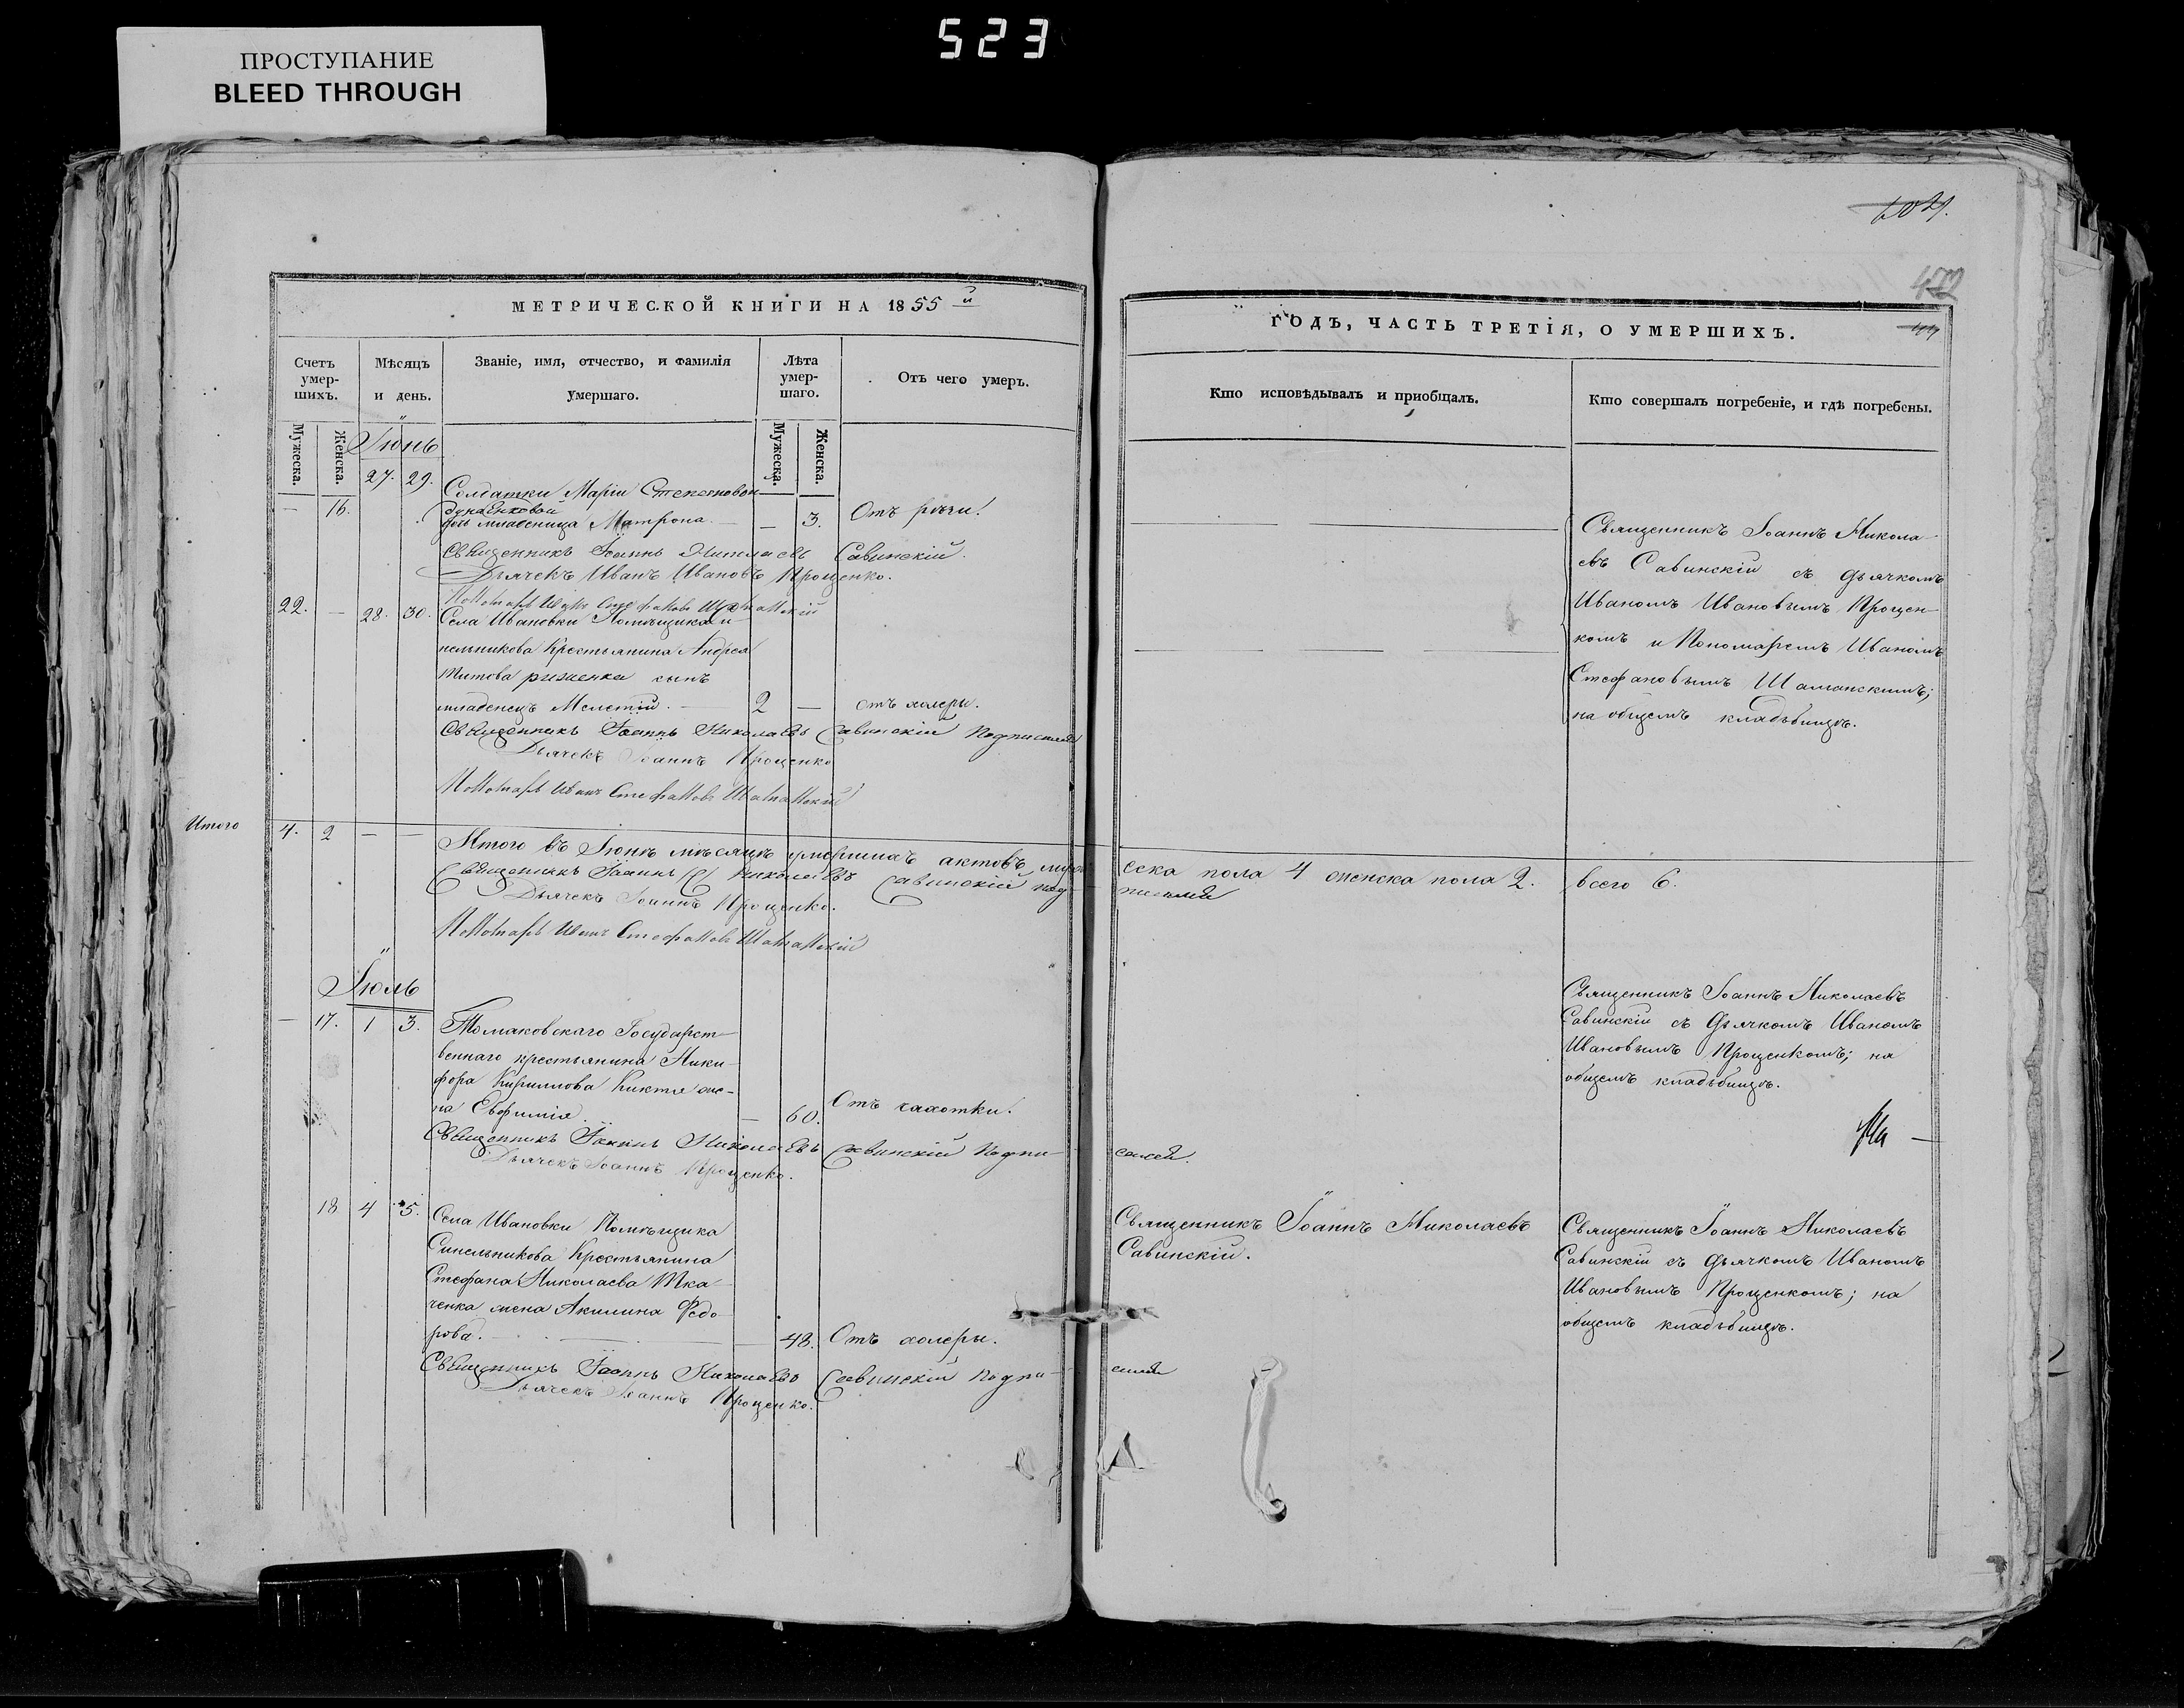 523
ПРОСТУПАНИЕ
BLEED THROUGH
МЕТРИЧЕСКОЙ КНИГИ НА 1855й
Счетъ умерших.
Мѣсяцъ и день.
Званіе, имя, отчество, и фамилія умершаго.
Лѣта умершаго.
Отъ чего умеръ.
Мужеска.
Женска.
Мужеска.
Женска.
Іюнь
16. 27. 29.
Солдатки Маріи Степановой
дочь младеница Матрона. — — 3. Отъ
Священникъ Іоаннъ Николаевъ Савинскій.
Дьячекъ Иванъ Ивановъ Проценко.
Пономарь Иванъ Стефановъ
22. — 28. 30. Села Ивановки Помѣщика Си-
нельникова Крестьянина Андрея
Титова сынъ
младенецъ Мелетій. — 2 — отъ холеры.
Священникъ Іоаннъ Николаевъ Савинскій
Дьячекъ Іоаннъ Проценко
Пономарь Иванъ Стефановъ
Итого 4. 2 — —
Итого въ Іюнѣ мѣсяцѣ умершихъ актовъ муже
Священникъ Іоаннъ Николаевъ Савинскій под
Дьячекъ Іоаннъ Проценко.
Пономарь Иванъ Стефановъ
Іюль
— 17. 1 3. Томаковскаго Государст-
веннаго крестьянина Ники-
фора Кириллова Киктя же-
на Евфимія — 60. Отъ чахотки.
Священникъ Іоаннъ Николаевъ Савинскій Подпи-
Дьячекъ Іоаннъ Проценко.
18 4 5. Села Ивановки Помѣщика
Синельникова Крестьянина
Стефана Николаева Тка-
ченка жена Акилина Федо-
рова. — 48. Отъ холеры.
Священникъ Іоаннъ Николаевъ Савинскій Подпи-
Дьячекъ Іоаннъ Проценко.
ГОДЪ, ЧАСТЬ ТРЕТІЯ, О УМЕРШИХЪ.
Кто исповѣдывалъ и пріобщалъ.
Кто совершалъ погребеніе, и гдѣ погребены.
Священникъ Іоаннъ Никола-
евъ Савинскій съ дьячкомъ
Иваномъ Ивановымъ Процен-
комъ и Пономаремъ Иваномъ
Стефановымъ
на общемъ кладьбищѣ.
ска пола 4 женска пола 2. всего 6.
Священникъ Іоаннъ Николаевъ
Савинскій съ дьячкомъ Иваномъ
Ивановымъ Проценкомъ; на
общемъ кладьбищѣ.
Священникъ Іоаннъ Николаевъ
Савинскій.
Священникъ Іоаннъ Николаевъ
Савинскій съ дьячкомъ Иваномъ
Ивановымъ Проценкомъ; на
общемъ кладьбищѣ.